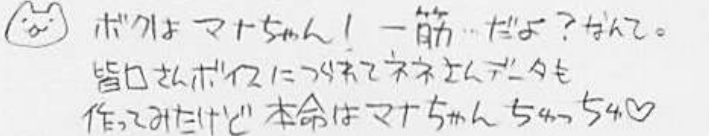 ボクはマナちゃん！一筋…だよ？なんて。
皆口さんボイスにつられてネネさんデータも
作ってみたけど本命はマナちゃんちゅっちゅ♡